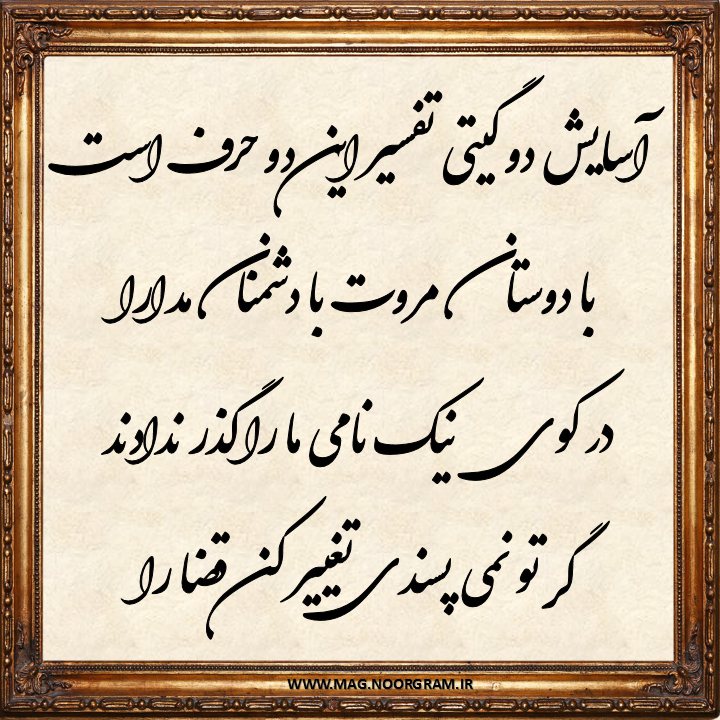 آسایش دو گیتی تفسیر این دو حرف است
با دوستان مروت با دشمنان مدارا
در کوی نیک نامی ما را گذر ندادند
گر تو نمی پسندی تغییر کن قضا را
WWW.MAG.NOORGRAM.IR